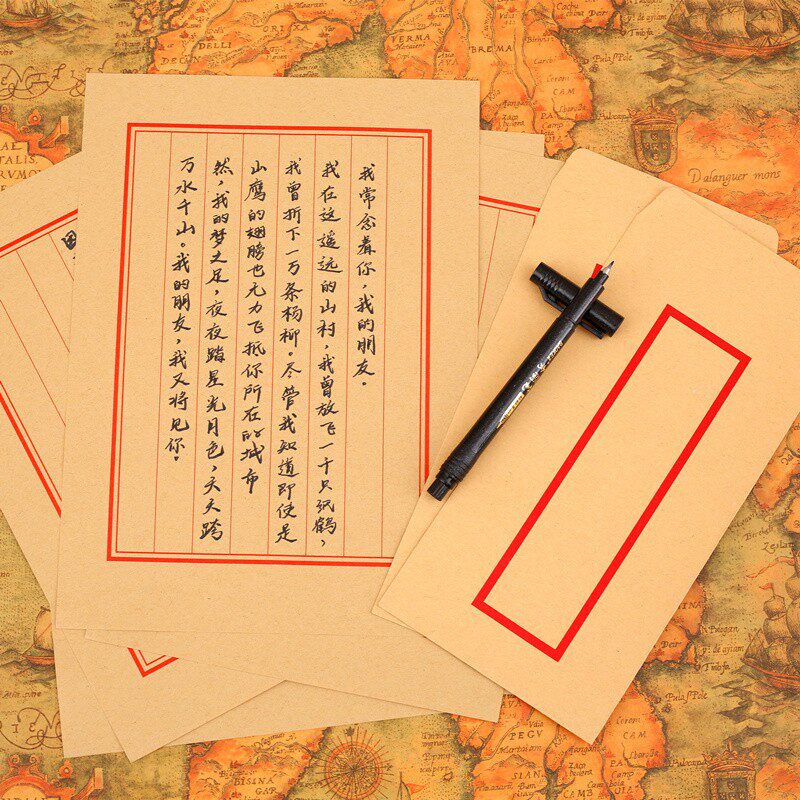 我常念着你，我的朋友。
我在这遥远的山村，我曾放飞一千只纸鹤，
我曾折下一万条杨柳。尽管我知道即使是
山鹰的翅膀也无力飞抵你所在的城市
然，我的梦之足，夜夜踏星光月色，天天跨
万水千山。我的朋友，我又将见你。
ORIXA
DELLI
VERMA
BREMA
CAM
Dalanguer mons
PEGV